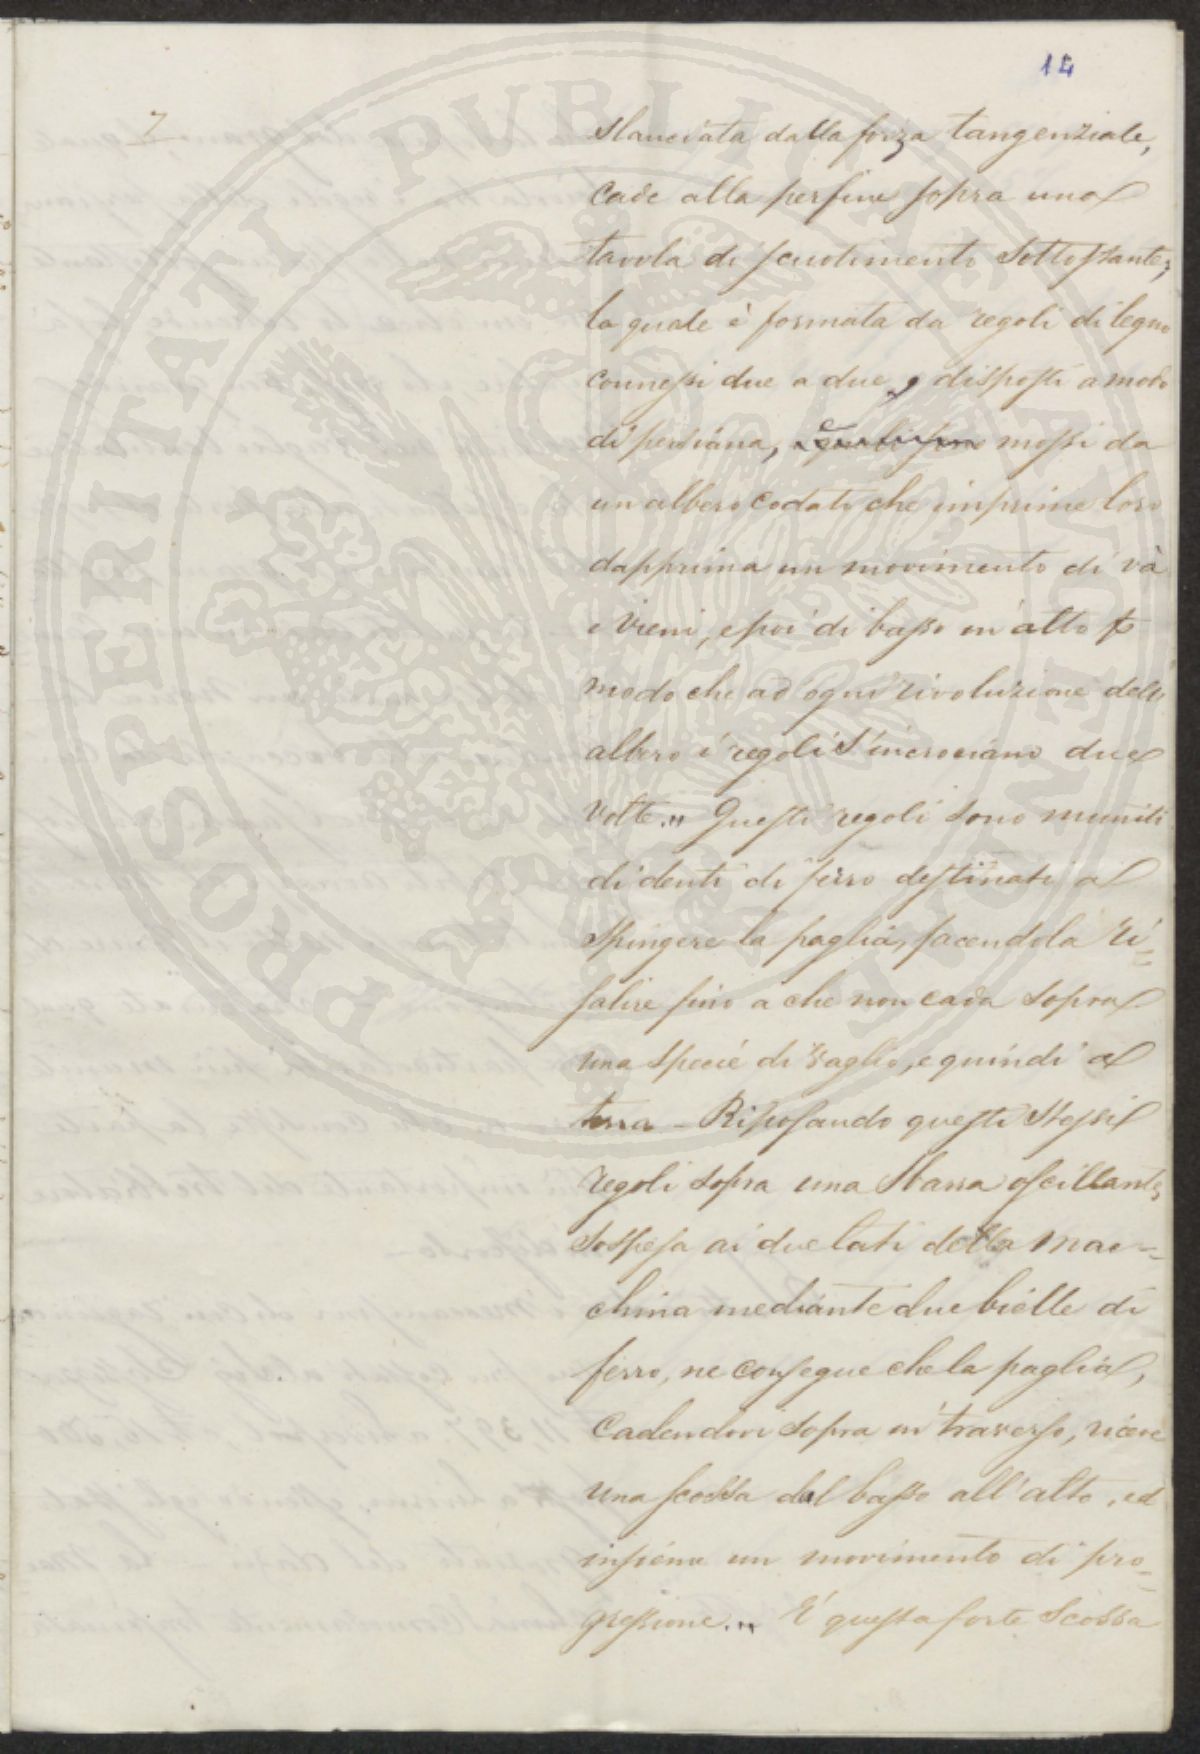 14
7
slanciata dalla forza tangenziale,
cade alla perfine sopra una
tavola di scuotimento sottostante,
la quale è formata da regoli di legno
connessi due a due, disposti a modo
di persiana, quali sono mossi da
un albero codato che imprime loro
dapprima un movimento di và
i vieni, e poi di basso in alto per
modo che ad ogni rivoluzione dell'
albero i regoli s'incrociano due
volte." Questi regoli sono muniti
di denti di ferro destinati a
spingere la paglia, facendola ri=
salire fino a che non cada sopra
una specie di vaglio, e quindi a
terra - Riposando questi stessi
regoli sopra una sbarra oscillante,
sospesa ai due lati della mac=
china mediante due bielle di
ferro, ne consegue che la paglia,
cadendovi sopra in traverso, riceve
una scossa dal basso all'alto, ed
insieme un movimento di pro=
gressione." E' questa forte scossa
PROSPERITATI PUBLICAE AUGENDAE